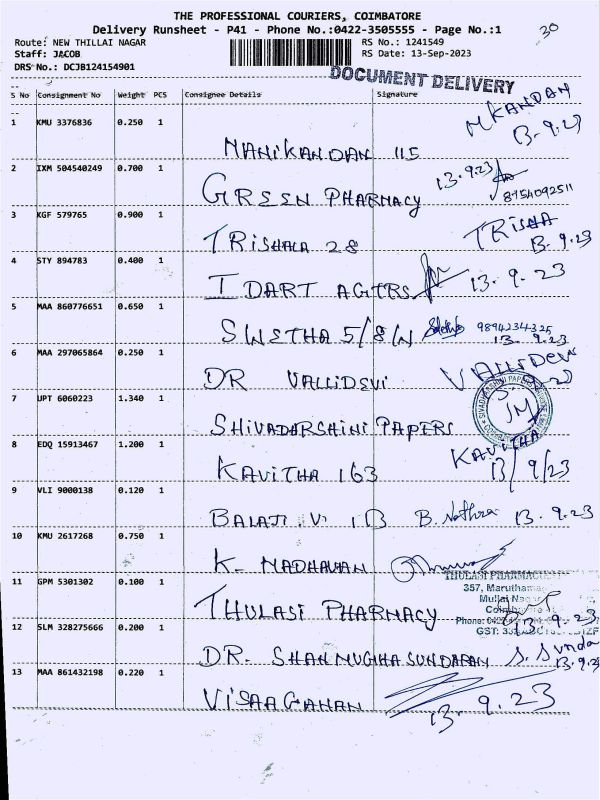 THE PROFESSIONAL COURIERS, COIMBATORE
Delivery Runsheet - P41 - Phone No.:0422-3505555 - Page No.:1
30
Route: NEW THILLAI NAGAR RS No.: 1241549
Staff: JACOB RS Date: 13-Sep-2023
DRS No.: DCJB124154901
DOCUMENT DELIVERY
S No Consignment No Weight PCS Consignee Details Signature
1 KMU 3376836 0.250 1 MANIKANDAN 115 MKANDAN 13.9.23
2 IXM 504540249 0.700 1 GREEN PHARMACY 13.9.23 8754092511
3 KGF 579765 0.900 1 TRISHALA 28 TRISHA 13.9.23
4 STY 894783 0.400 1 I DART AGTRS 13.9.23
5 MAA 860776651 0.650 1 SWETHA 5/8/W 9894234325 13.9.23
6 MAA 297065864 0.250 1 DR VALLIDEVI
7 UPT 6060223 1.340 1 SHIVADARSHINI PAPERS
8 EDQ 15913467 1.200 1 KAVITHA 163 KAVITHA 13/9/23
9 VLI 9000138 0.120 1 BALAJI . V 113 B. 13.9.23
10 KMU 2617268 0.750 1 K. MADHAVAN
11 GPM 5301302 0.100 1 THULASI PHARMACY 13.9.23
THULASI PHARMAC
357, Marutham
Mullai Na
Coimb
Phone: 0422
GST: 33
12 SLM 328275666 0.200 1 DR. SHANMUGHA SUNDARAM S. Sunda 13.9.23
13 MAA 861432198 0.220 1 VISAAGANAN 13.9.23